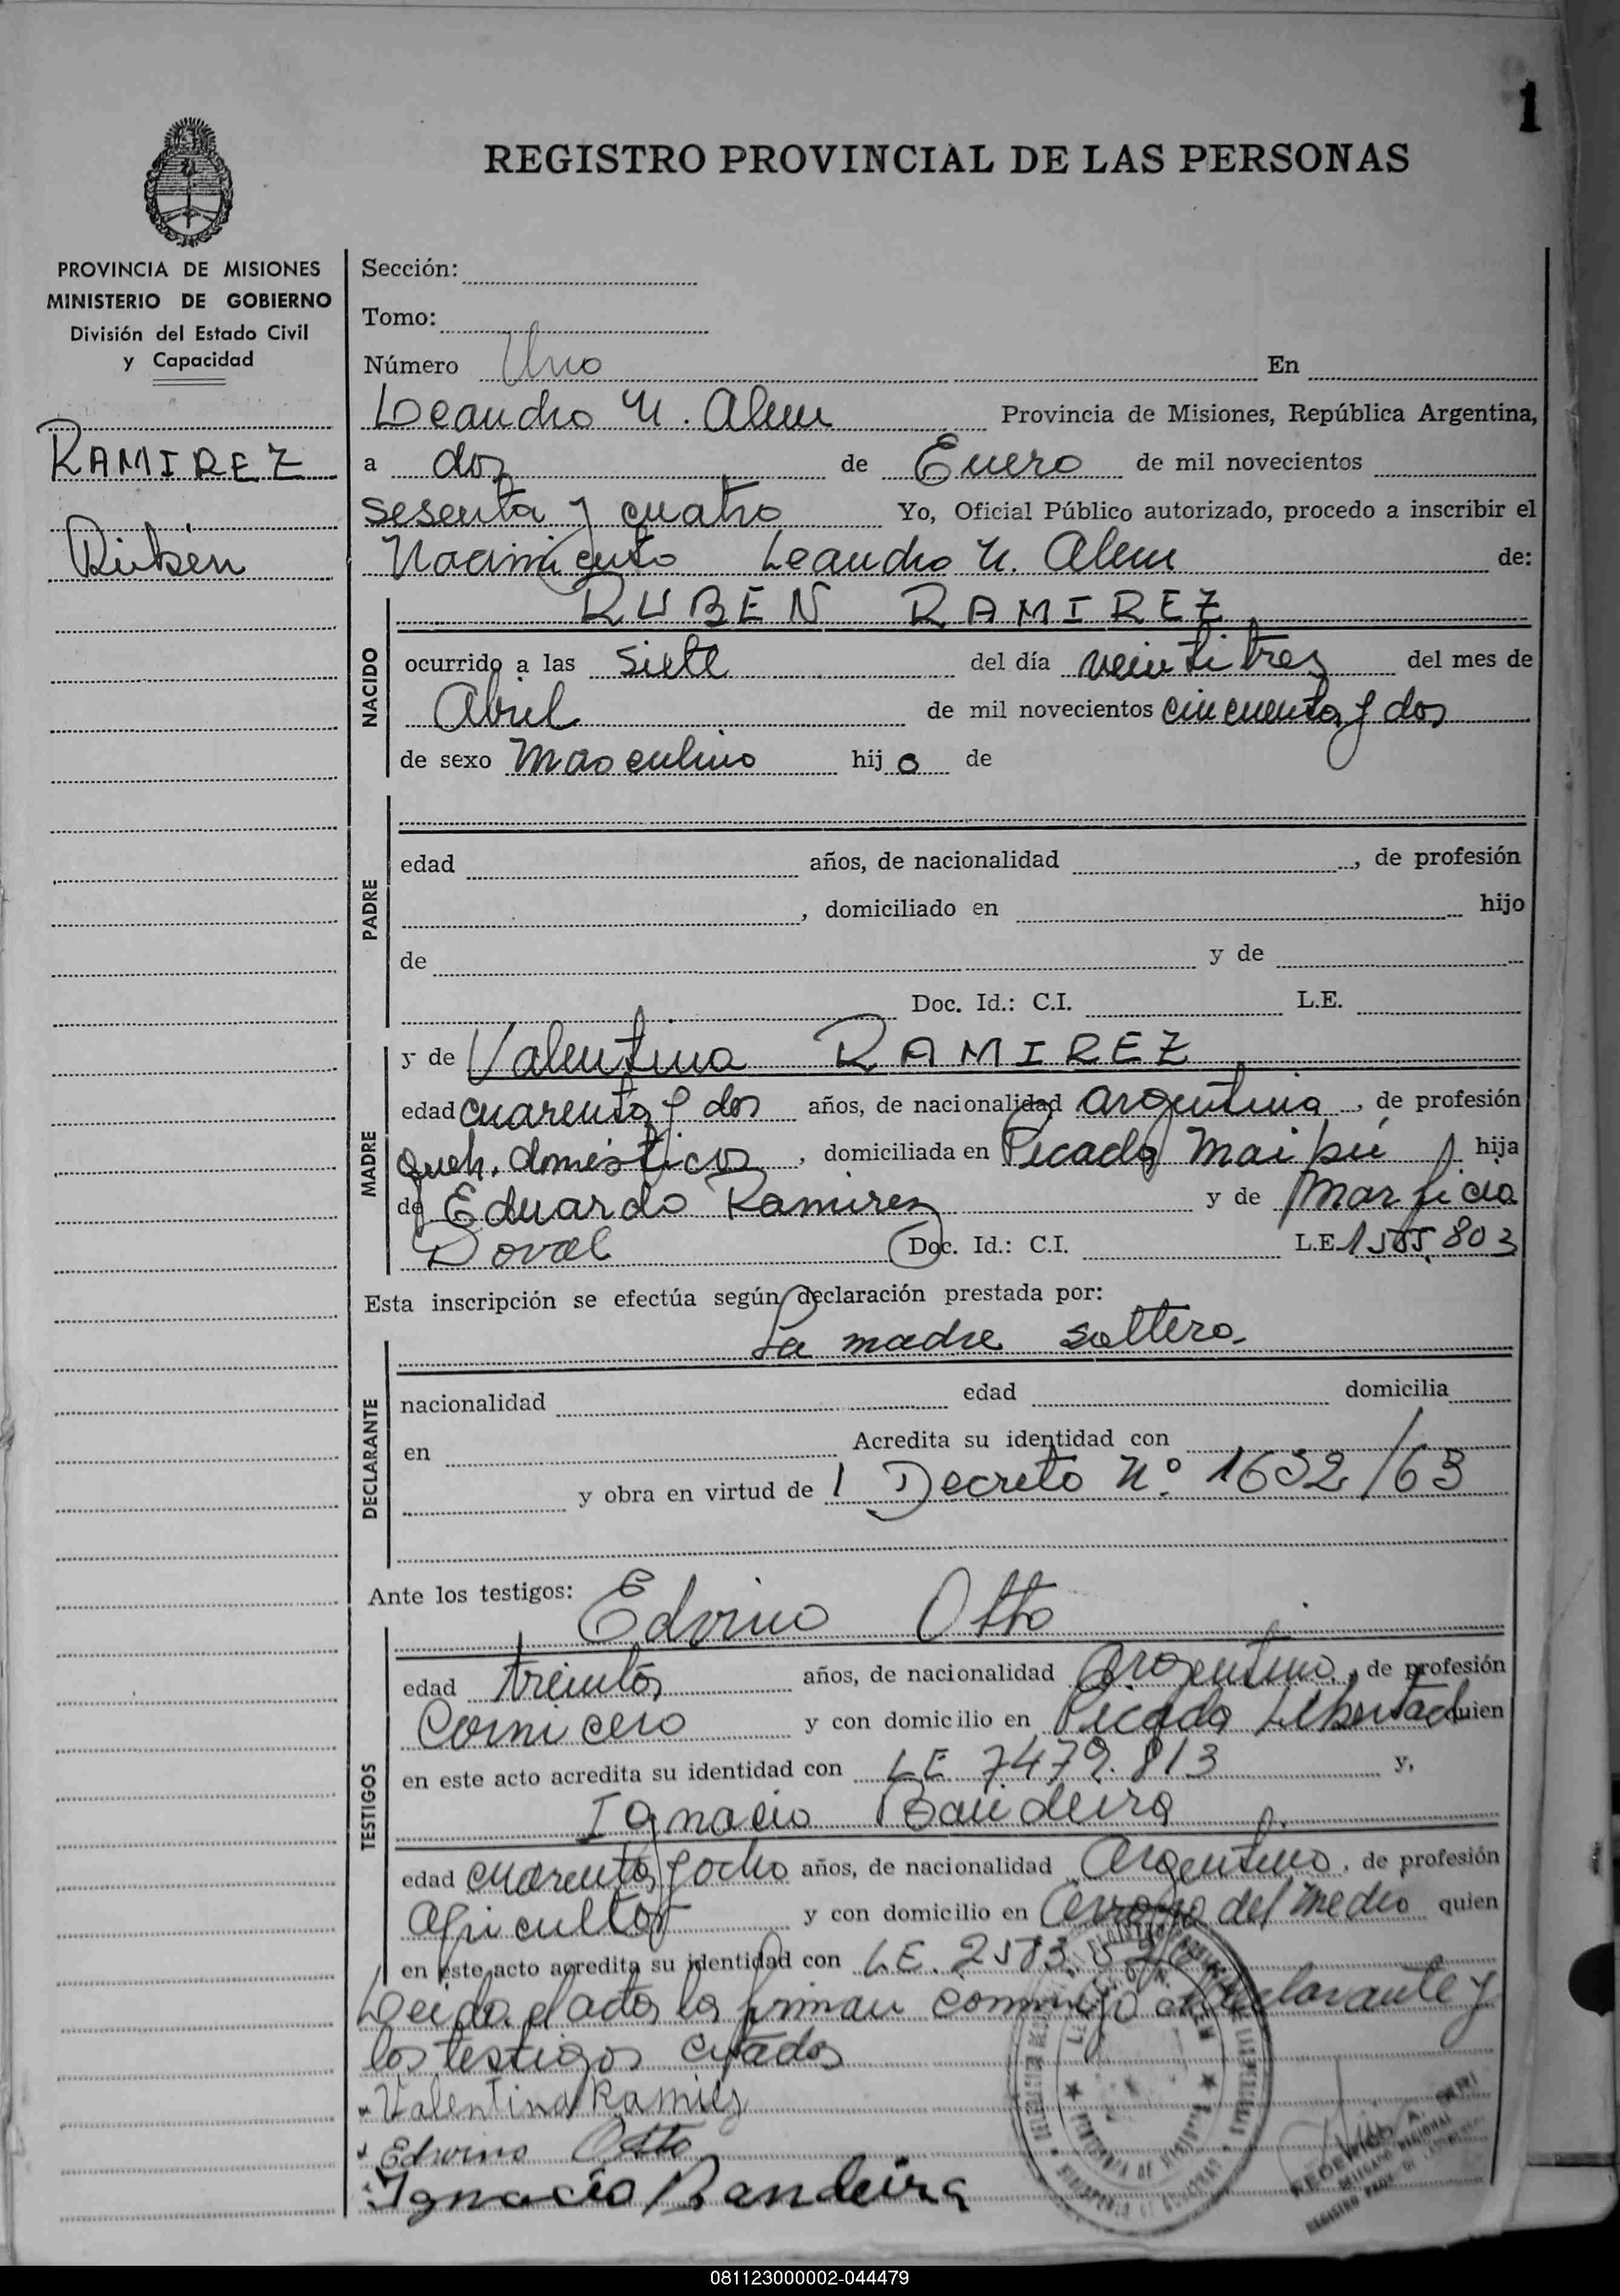 1
REGISTRO PROVINCIAL DE LAS PERSONAS
PROVINCIA DE MISIONES
MINISTERIO DE GOBIERNO
División del Estado Civil
y Capacidad
RAMIREZ
Rubén
Sección:
Tomo:
Número Uno En
Leandro N. Alem Provincia de Misiones, República Argentina,
a dos de Enero de mil novecientos
sesenta y cuatro Yo, Oficial Público autorizado, procedo a inscribir el
Nacimiento Leandro N. Alem de:
NACIDO
RUBEN RAMIREZ
ocurrido a las siete del día veintitres del mes de
Abril de mil novecientos cincuenta y dos
de sexo Masculino hijo de
PADRE
edad años, de nacionalidad , de profesión
, domiciliado en hijo
de y de
Doc. Id.: C.I. L.E.
MADRE
y de Valentina RAMIREZ
edad cuarenta y dos años, de nacionalidad argentina, de profesión
queh. domésticos, domiciliada en Picada Maipú hija
de Eduardo Ramirez y de
Doval Doc. Id.: C.I. L.E.
Esta inscripción se efectúa según declaración prestada por:
DECLARANTE
La madre soltera.
nacionalidad edad domicilia
en Acredita su identidad con
y obra en virtud de Decreto Nº 1632/63
Ante los testigos:
TESTIGOS
Edvino Otto
edad treinta años, de nacionalidad Argentino, de profesión
Carnicero y con domicilio en Picada Libertad quien
en este acto acredita su identidad con LE 7479.813 y,
Ignacio Bandeira
edad cuarenta y ocho años, de nacionalidad Argentino, de profesión
Agricultor y con domicilio en Arroyo del Medio quien
en este acto acredita su identidad con L.E. 2583.
Leida el acta la firman conmigo el declarante y
los testigos citados
Valentina Ramirez
Edvino Otto
Ignacio Bandeira
FEDERICO A.
DELEGADO REGIONAL
081123000002-044479